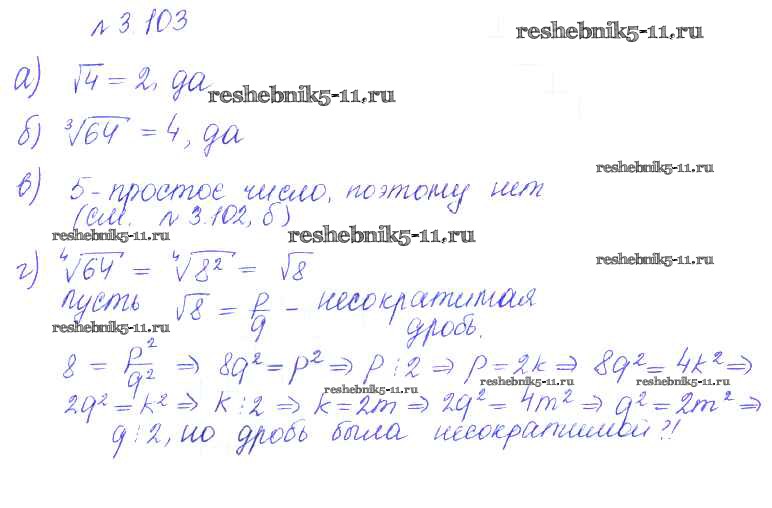 №3.103
reshebnik5-11.ru
а) √4 = 2, да
reshebnik5-11.ru
б) ³√64 = 4, да
reshebnik5-11.ru
в) 5 - простое число, поэтому нет
(см. №3.102, б)
reshebnik5-11.ru
reshebnik5-11.ru
reshebnik5-11.ru
г) ⁴√64 = ⁴√8² = √8
пусть √8 = p/q - несократимая
дробь.
reshebnik5-11.ru
8 = p²/q² ⇒ 8q² = p² ⇒ p⋮2 ⇒ p = 2k ⇒ 8q² = 4k² ⇒
reshebnik5-11.ru
reshebnik5-11.ru
reshebnik5-11.ru
2q² = k² ⇒ k⋮2 ⇒ k = 2m ⇒ 2q² = 4m² ⇒ q² = 2m² ⇒
q⋮2, но дробь была несократимой?!